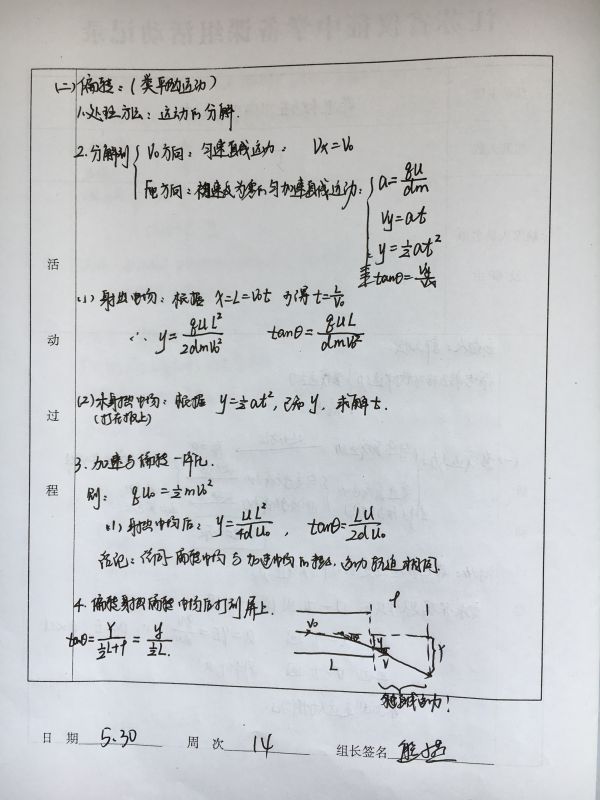 (二) 偏转：(类平抛运动)
1. 处理方法：运动的分解.
2. 分解到 { V₀方向：匀速直线运动： Vx=V₀
F电方向：初速度为零的匀加速直线运动： { a=qu/dm
Vy=at
y=½at²
tanθ=Vy/V₀
(1) 射出电场：根据 x=L=V₀t 可得 t=L/V₀
∴ y=qUL²/2dmV₀² tanθ=qUL/dmV₀²
(2) 未射出电场：根据 y=½at², 已知 y, 求解 t.
(打在板上)
3. 加速与偏转一体化.
则： qU₀=½mV₀²
(1) 射出电场后： y=UL²/4dU₀ , tanθ=LU/2dU₀
4. 偏转射出偏转电场后打到屏上.
tanθ=Y/(½L+l)=y/½L.
V₀
L
l
y
V
Y
匀速直线运动！
活
动
过
程
日 期 5.30 周 次 14 组长签名